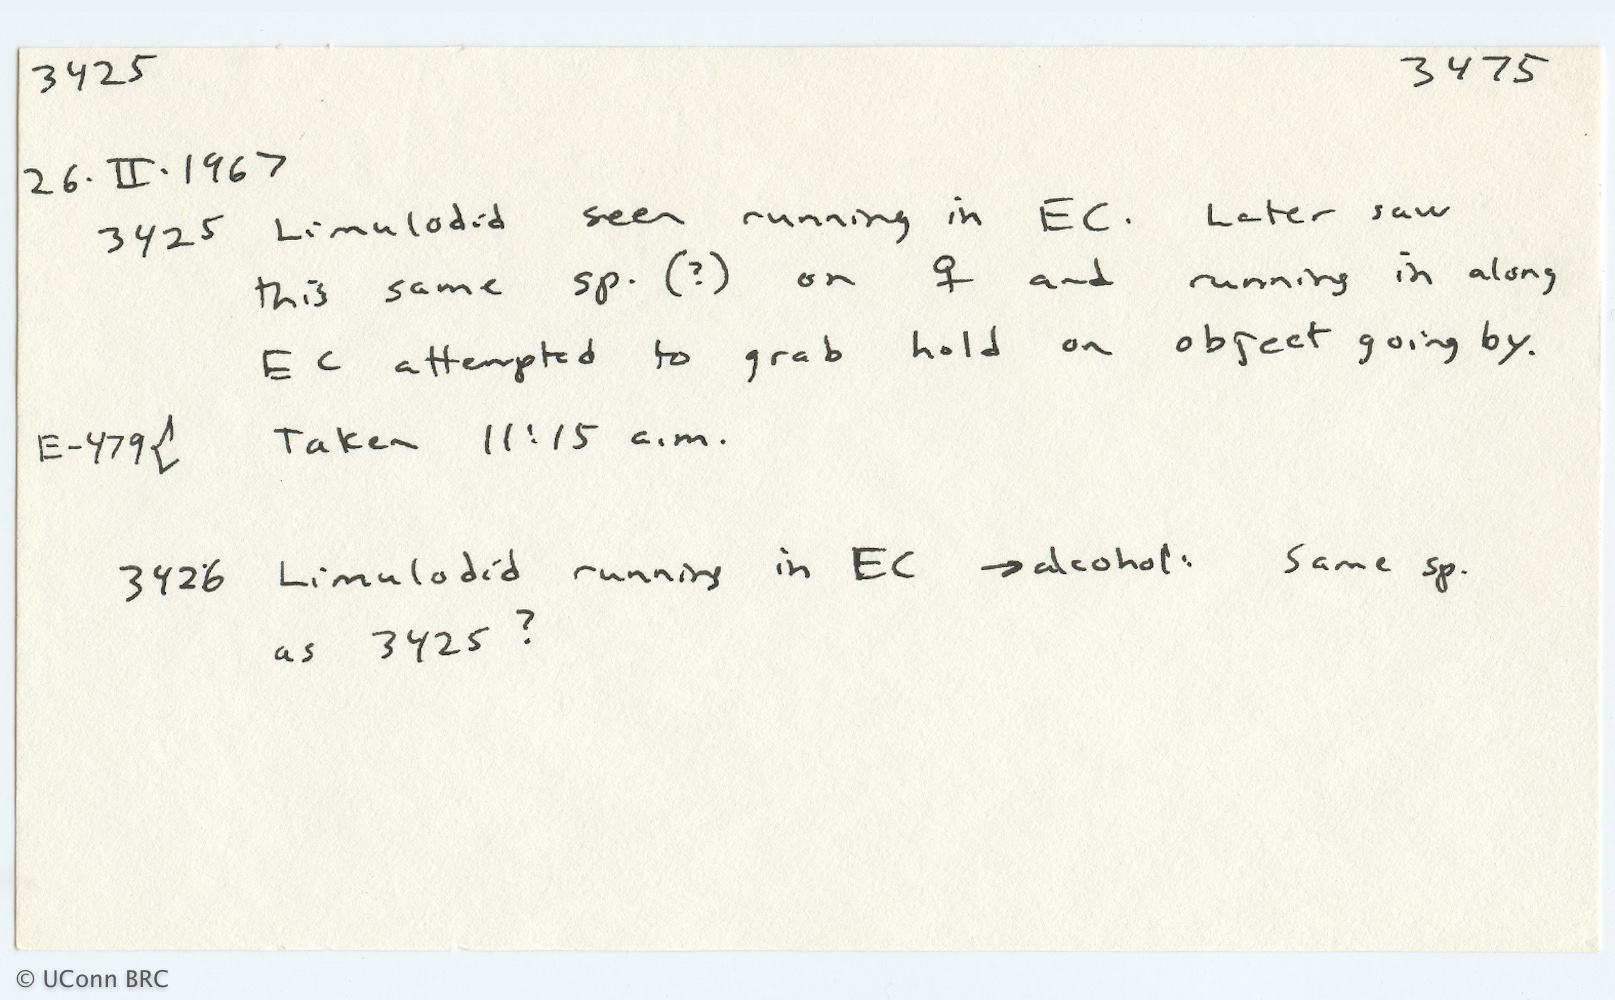 3425 3475
26.II.1967
3425 Limulodid seen running in EC. Later saw
this same sp. (?) on ♀ and running in along
EC attempted to grab hold on object going by.
E-479{ Taken 11:15 a.m.
3426 Limulodid running in EC →alcohol: Same sp.
as 3425?
© UConn BRC